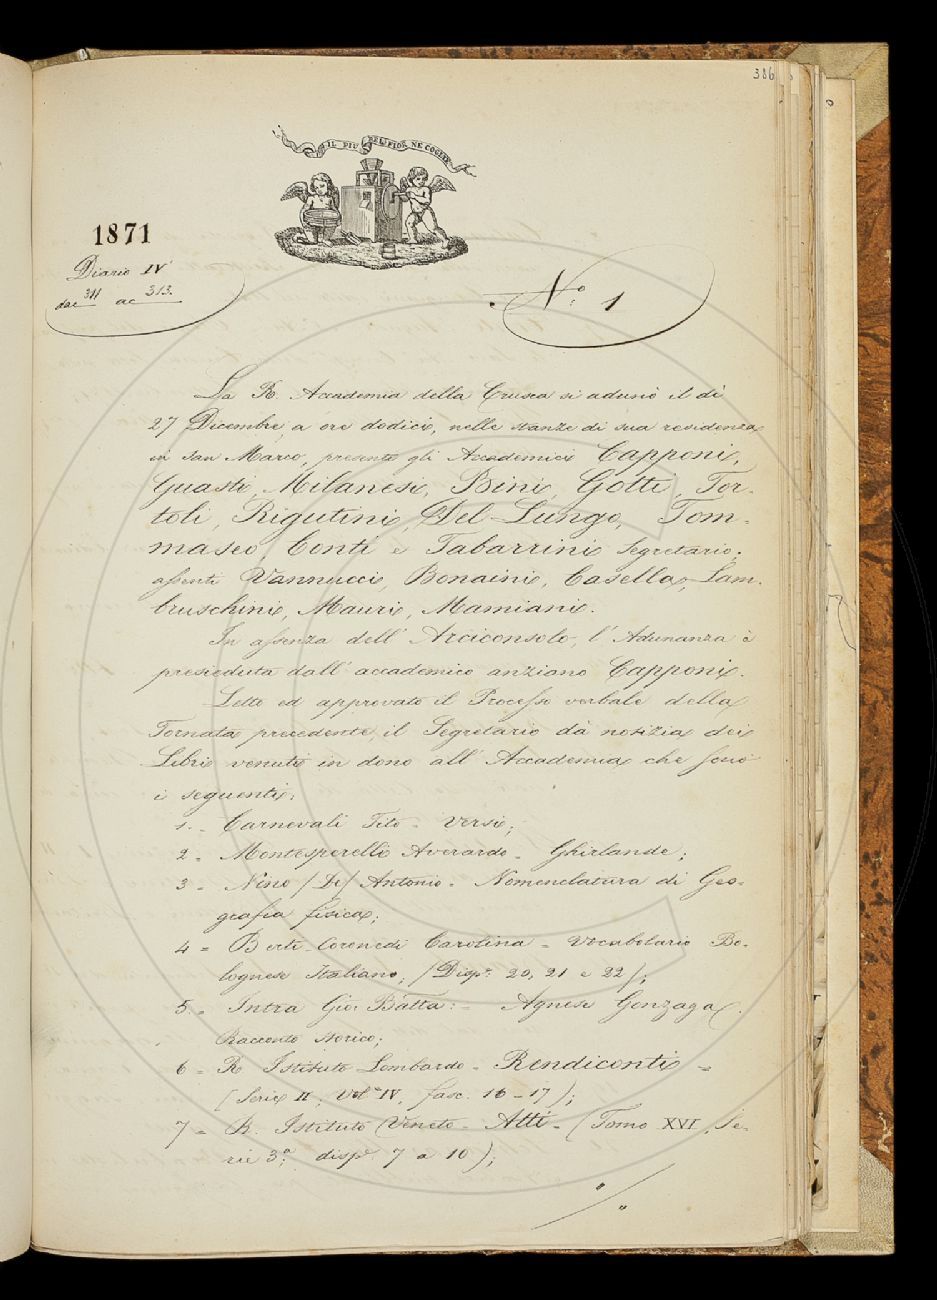 386
IL PIU BEL FIOR NE COGLIE
1871
Diario IV
dac 311 ac 313.
N.o 1
La R. Accademia della Crusca si adunò il dì
27 Dicembre, a ore dodici, nelle stanze di sua residenza
in San Marco, presenti gli Accademici Capponi,
Guasti, Milanesi, Bini, Gotti, Tor-
toli, Rigutini, Del-Lungo, Tom-
maseo, Conti e Tabarrini Segretario;
assenti Vannucci, Bonaini, Casella, Lam-
bruschini, Mauri, Mamiani.
In assenza dell' Arciconsolo, l' Adunanza è
presieduta dall' accademico anziano Capponi.
Letto ed approvato il Processo verbale della
Tornata precedente, il Segretario dà notizia dei
Libri venuti in dono all' Accademia, che sono
i seguenti:
1.- Carnevali Tito - Versi;
2 - Montesperelli Averardo - Ghirlande;
3 - Nino /De/ Antonio - Nomenclatura di Geo-
grafia fisica;
4 - Berti Coronedi Carolina - Vocabolario Bo-
lognese Italiano; /Disp.e 20, 21 e 22/;
5.- Intra Gio: Batta: - Agnese Gonzaga.
Racconto storico;
6 - R. Istituto Lombardo - Rendiconti -
(Serie II, Vol. IV, fasc. 16-17);
7 - R. Istituto Veneto - Atti - (Tomo XVI, Se-
rie 3.a disp.e 7 a 10);